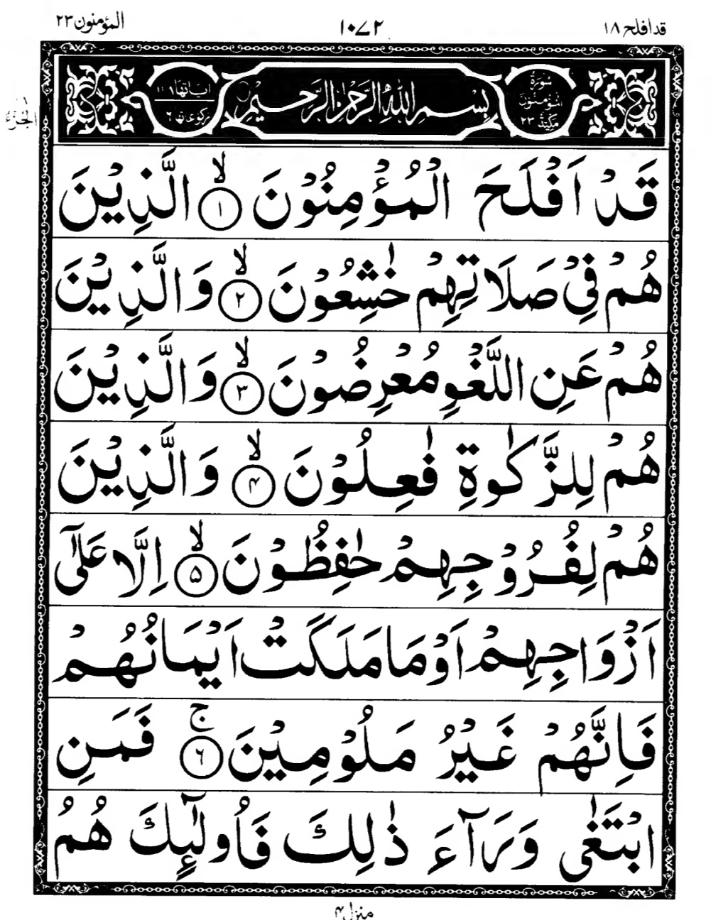 قدافلح ۱۸ ۱۰۷۲ المؤمنون ۲۳
سُورَةُ الْمُؤْمِنُونَ مَكِّيَّةٌ ۲۳ بِسْمِ اللّٰهِ الرَّحْمٰنِ الرَّحِيْمِ
قَدْ اَفْلَحَ الْمُؤْمِنُوْنَ ۙ﴿۱﴾ الَّذِيْنَ
هُمْ فِيْ صَلَاتِهِمْ خٰشِعُوْنَ ۙ﴿۲﴾ وَالَّذِيْنَ
هُمْ عَنِ اللَّغْوِ مُعْرِضُوْنَ ۙ﴿۳﴾ وَالَّذِيْنَ
هُمْ لِلزَّكٰوةِ فٰعِلُوْنَ ۙ﴿۴﴾ وَالَّذِيْنَ
هُمْ لِفُرُوْجِهِمْ حٰفِظُوْنَ ۙ﴿۵﴾ اِلَّا عَلٰٓى
اَزْوَاجِهِمْ اَوْ مَا مَلَكَتْ اَيْمَانُهُمْ
فَاِنَّهُمْ غَيْرُ مَلُوْمِيْنَ ۚ﴿۶﴾ فَمَنِ
ابْتَغٰى وَرَآءَ ذٰلِكَ فَاُولٰٓئِكَ هُمُ
منزل ۴